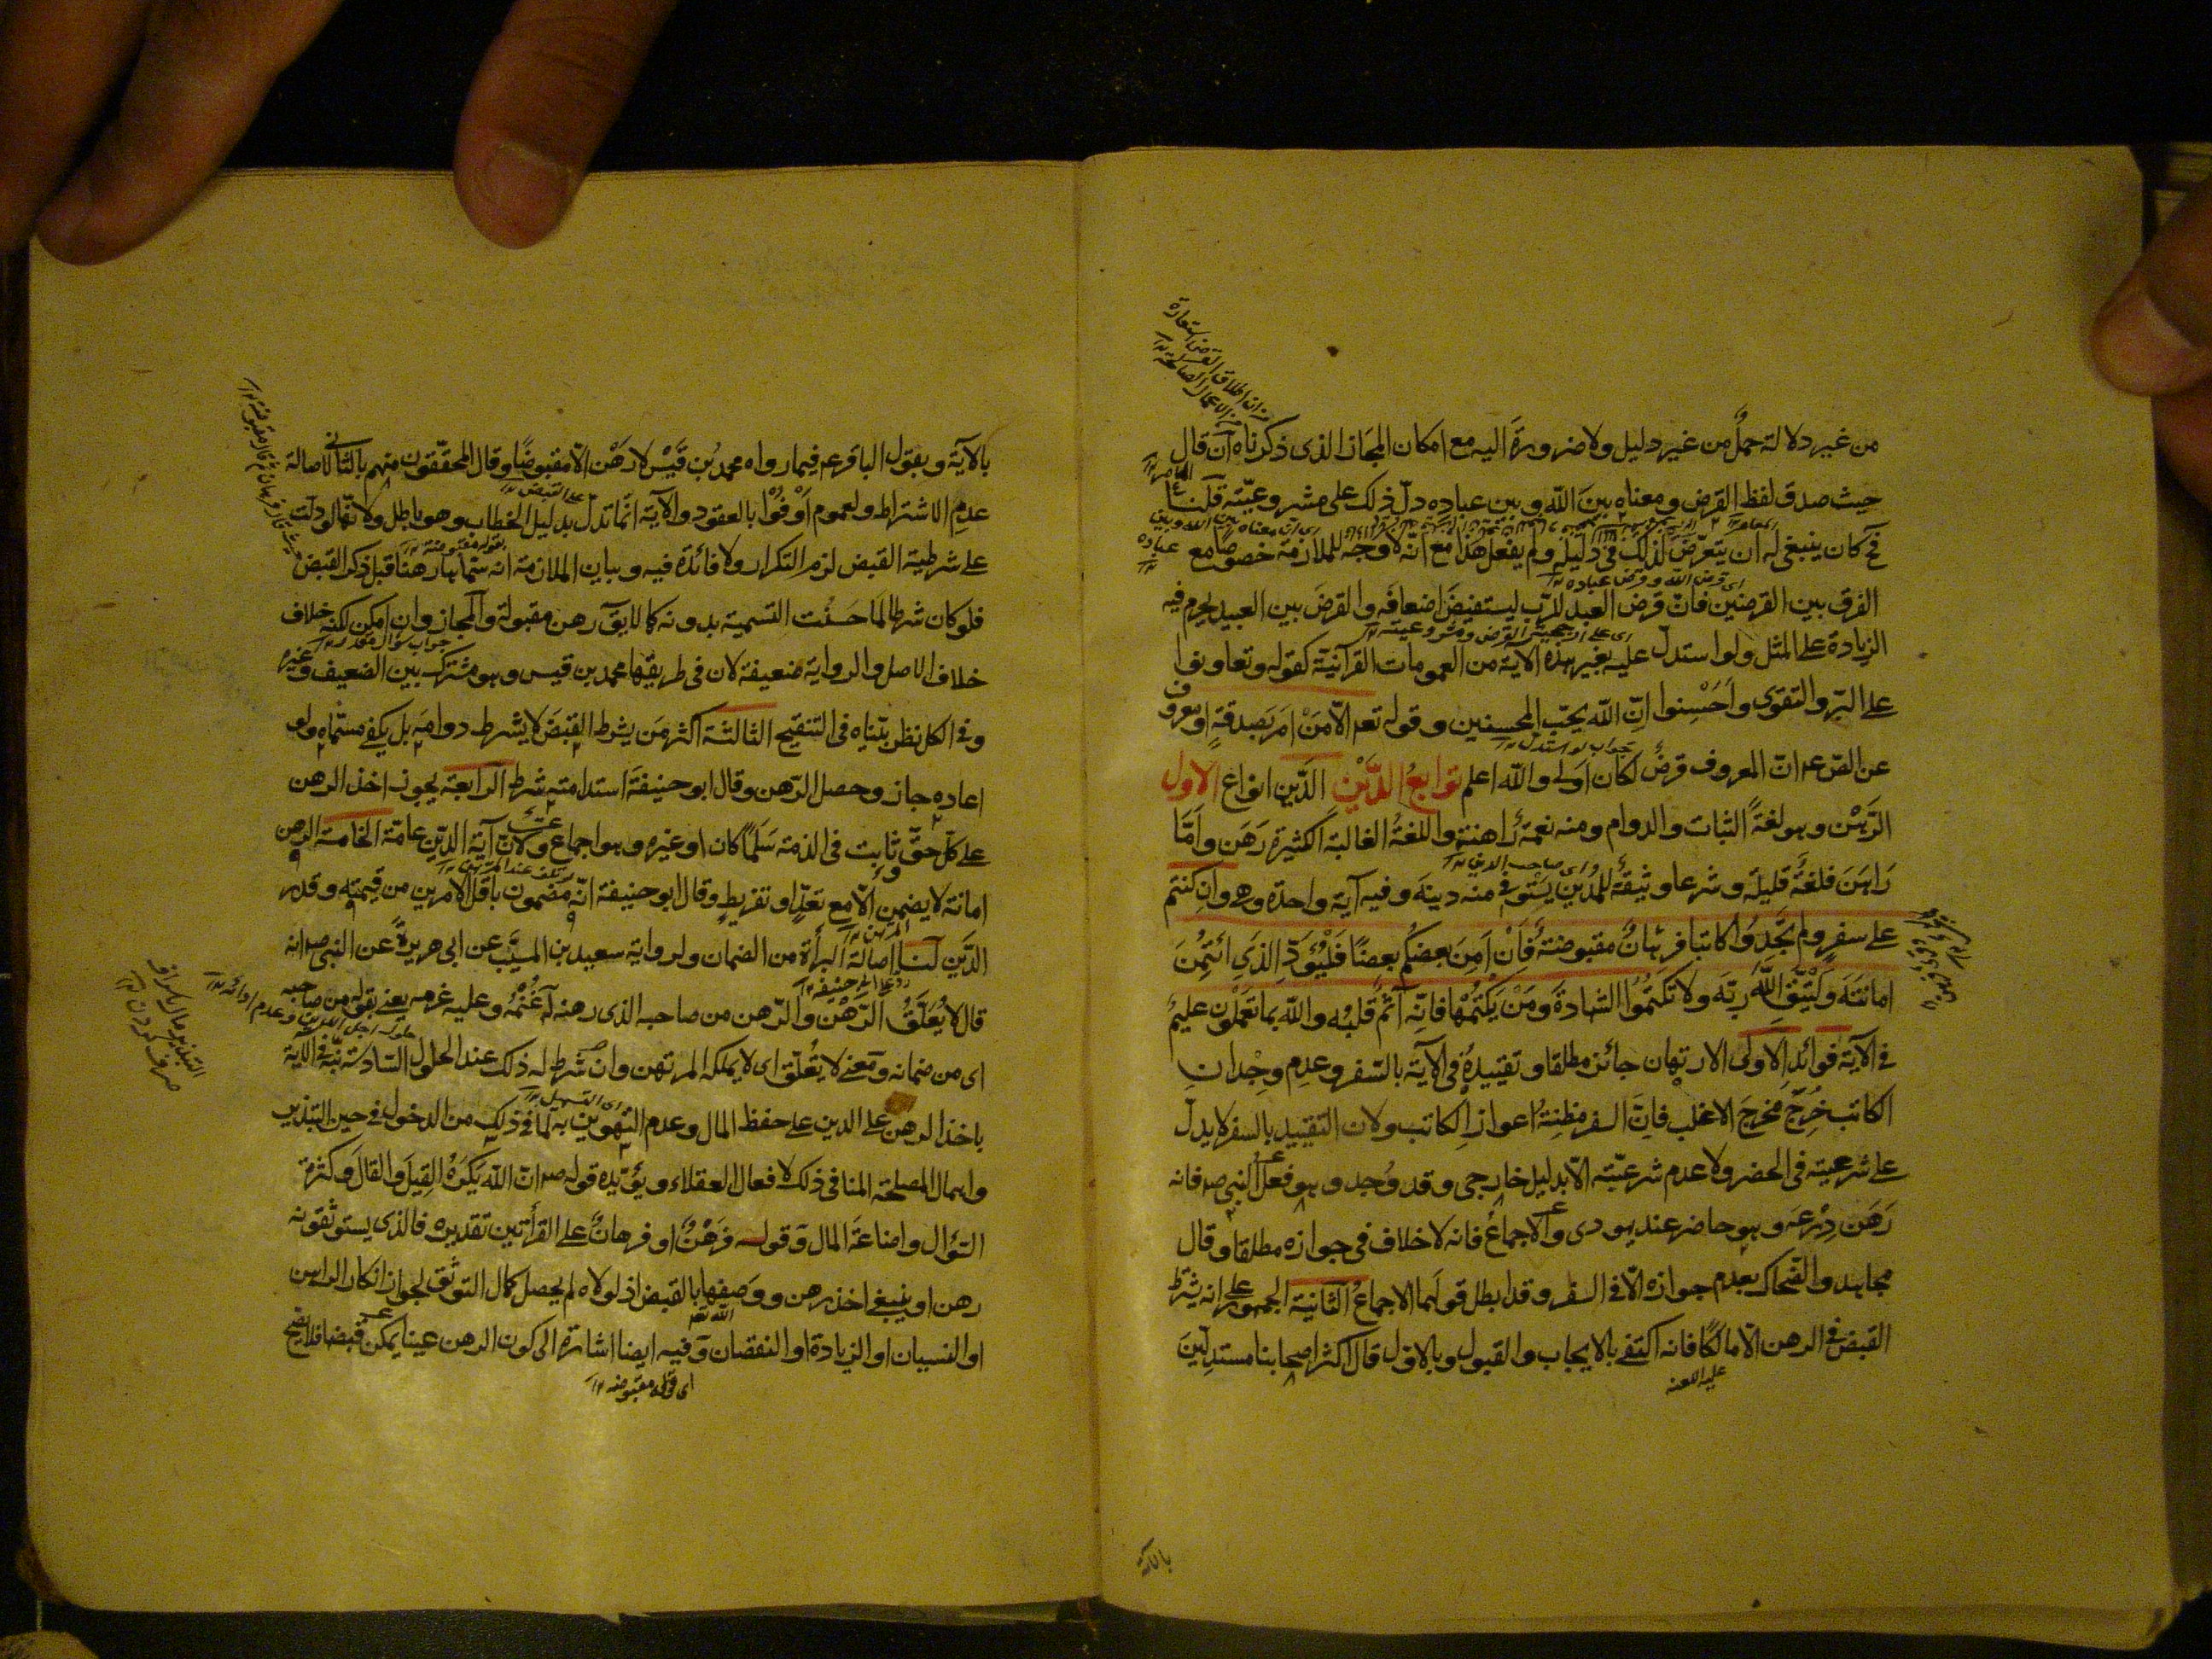 من غير دلالة حملٌ من غير دليل ولا ضرورة اليه مع امكان المجاز الذى ذكرناه آن قال
حيث صدق لفظ القرض ومعناه بين الله وبين عباده دلّ ذلك على مشروعيّته قلنا
فح كان ينبغى له ان يتعرّض لذلك فى دليله ولم يفعل هذا مع انّه لا وجه للملازمة خصوصًا مع
الفرق بين القرضين فانّ قرض العبد للرّب ليستفيض اضعافه والقرض بين العبيد يحرم فيه
الزيادة على المثل ولو استدل عليه بغير هذه الآية من العمومات القرآنيّة كقوله وتعاونوا
على البرّ والتقوى واَحْسِنوا انّ الله يحبّ المحسنين وقوله تعه الّا مَنْ امَر بصدقةٍ او معروف
عن الصّ عه انّ المعروف قرضٌ لكان اولى والله اعلم توابعُ الدَّيْنِ الدَّين انواع الاول
الرَّهْن وهو لغةً الثبات والدوام ومنه نعمةٌ راهنة واللغةُ الغالبة الكثيرة رَهَن وامّا
رَاهَنَ فلغةٌ قليلة وشرعا وثيقةٌ للمَدين يَسْتَوفى منه دينه وفيه آية واحدة وهى وان كنتم
على سفرٍ ولم تَجِدُوا كاتبا فرهانٌ مقبوضةٌ فَاِنْ اَمِنَ بعضكُم بعضًا فَلْيُؤَدّ الذى ائتُمِنَ
امانتَه وَلْيَتّقِ اللّٰه رَبّه ولا تَكتمُوا الشهادةَ ومَنْ يَكتمْها فانّه آثمٌ قلبُه واللّٰه بما تعملون عليمٌ
فى الآية فوائد الاولى الارتهان جائز مطلقا وتقييدهُ فى الآية بالسّفر وعدم وِجْدان
الكاتب خُرِّج مخرجَ الاغلب فانّ السفر مظِنّةُ اعواز الكاتب ولان التقييد بالسفر لا يدلّ
على شرعيته فى الحضر ولا عدم شرعيّته الّا بدليل خارجى وقد وُجد وهو فعل النبى صه فانه
رَهَن دِرْعَه وهو حاضر عند يهودى والاجماعُ فانه لا خلاف فى جوازه مطلقا وقال
مجاهد والضّحاك بعدم جوازه الّا فى السفر وقد ابطل قولَهما الاجماعُ الثانية الجمهور على انه يشترط
القبض فى الرهن الّا مالكًا فانه اكتفى بالايجاب والقبول وبالاوّل قال اكثر اصحابنا مستدلّين
عليه اللعنه
بالآية
بالآية وبقول الباقر عه فيما رواه محمد بْن قَيْس لا رَهْن الّا مقبوضًا وقال المحققون منهم بالثانى لاصالة
عدم الاشتراط ولعموم اَوْفُوا بالعقود والآية انّما تدلّ بدليل الخطاب وهو باطل ولانّها لو دلّت
على شرطية القبض لزم التكرار ولا فائدة فيه وبيان الملازمة انه سمّاها رهنا قبل ذكر القبض
فلو كان شرطا لَما حَسُنت التسمية بدونه كما لا يقٓ رهن مقبولة والمجاز وان امكن لكنّه خلاف
خلاف الاصل والرواية ضعيفة لان فى طريقها محمد بن قيس وهو مشترك بين الضعيف وغيره
وفى الكل نظر بيّنّاه فى التنقيح الثالثة اكثر مَن يشرط القبضَ لا يشرط دوامه بل يكفى مسمّاه ولو
اعاده جاز وحصل الرّهن وقال ابو حنيفة استدامته شرط الرابعة يجوز اخذ الرهن
على كلّ حقّ ثابت فى الذمة سَلَمًا كان او غيره وهو اجماع ولانّ آية الدّين عامّة الخامسة الرهن
امانة لا يضمن الّا مع تعدٍّ او تفريطٍ وقال ابو حنيفة انّه مضمون باقل الامرين من قيمته وقدر
الدَّين لَنا اصالة البرأة من الضمان ولرواية سعيد بن المسيَّب عن ابى هريرة عن النبى صه انه
قال لا يُغلَقُ الرَّهْن والرّهن من صاحبه الذى رهنه له غُنْمُه وعليه غرمه يعنى بقوله من صاحبه
اى من ضمانه ومعنى لا يُغلَق اى لا يملكه المرتهن وان شرط له ذلك عند الحلول السّادسة نبّه فى الآية
باخذ الرهن على الدين على حفظ المال وعدم التهوين به لما فى ذلك من الدخول فى حيز التبذير
واهمال المصلحة المنافى ذلك لافعال العقلاء ويؤيّده قوله صه انّ الله يَكرَهُ القِيلَ والقالَ وكثرة
السّؤال واضاعةَ المال وقوله فَرَهْنٌ او فرهانٌ على القرأتين تقديره فالذى يستوثقونه
رهن او ينبغى اخذ رهن ووَصفها بالقبض اذ لولاه لم يحصل كمال التوثّق لجواز انكار الراهن
او النسيان او الزيادة او النقصان وفيه ايضا اشارة الى كون الرهن عينا يمكن قبضها فلا يصح
اى قوله مقبوضه ١٢